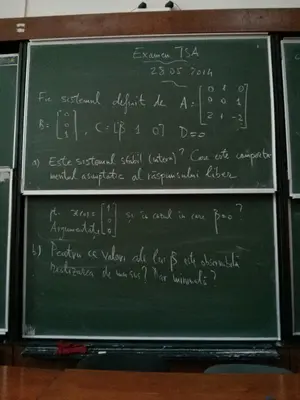 Examen TSA
28.05.2014
Fie sistemul definit de A = [0 1 0
0 0 1
2 1 -2]
B = [0
0
1], C = [β 1 0] D = 0
a) Este sistemul stabil (intern)? Care este comporta-
mentul asimptotic al răspunsului liber
pt. x(0) = [1
0
0] și în cazul în care β=0?
Argumentați.
b) Pentru ce valori ale lui β este observabilă
realizarea de mai sus? Dar minimală?